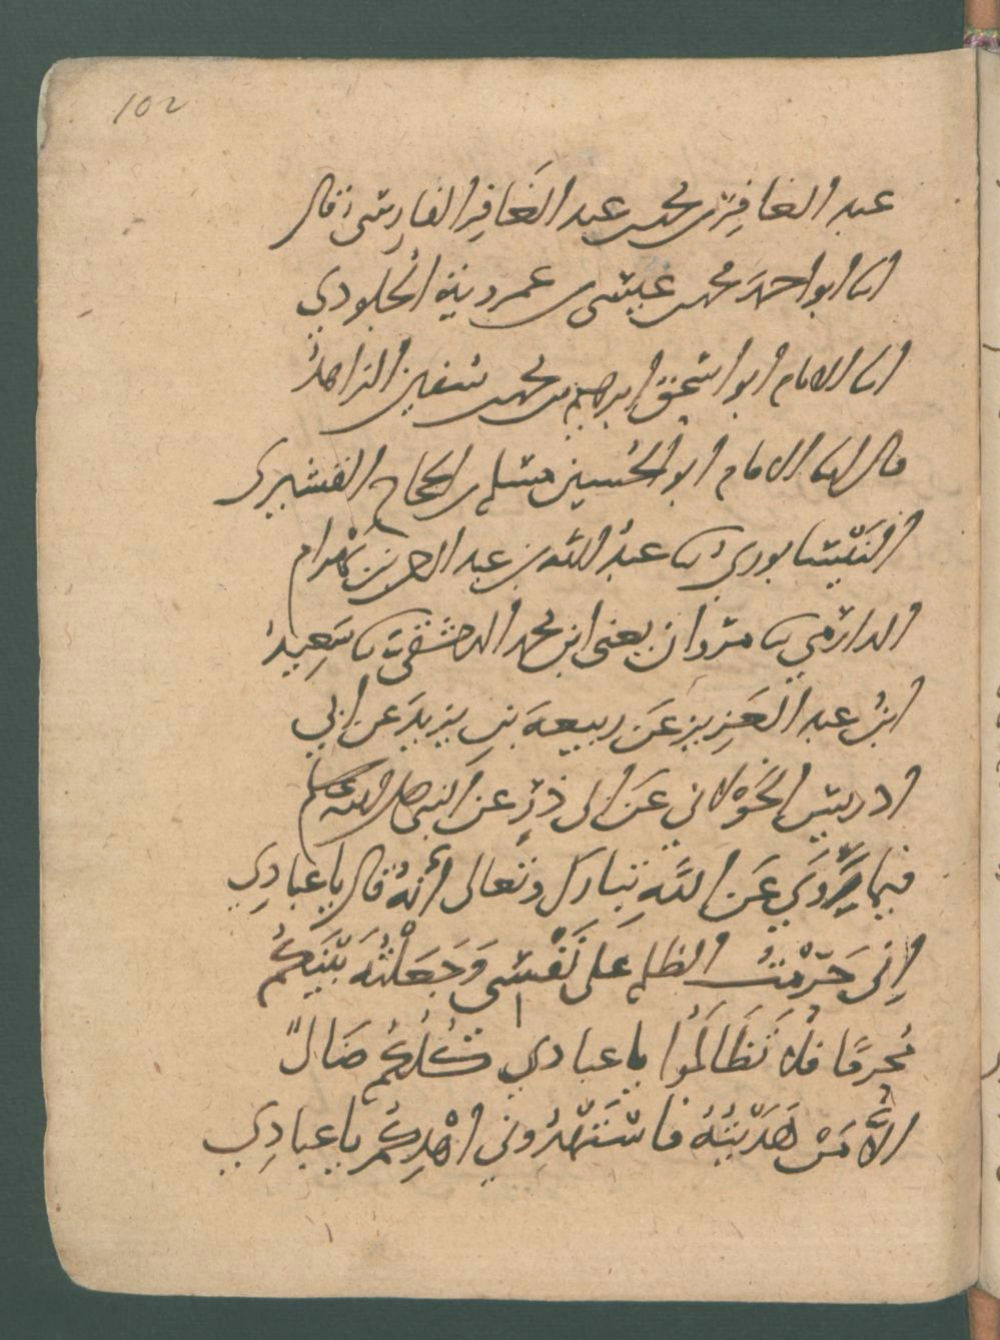 102
عبد الغافر بن محمد بن عبد الغَافِر الفارسى قال
انا ابو احمد محمد بن عيسى بن عمرويه الجلودي
انا الامام ابو اسحق ابرهيم بن محمد بن سفين الزاهدُ
قال انا الامام ابو الحُسين مسلم بن الحجاج القشيرى
النَيْسابوري نا عبدُ الله بن عبد الرحمن بن بَهْرام
الدارمي نا مروان يعنى ابن محمد الدمشقي نا سَعِيدُ
ابنُ عبد العَزِيز عَن ربيعةَ بنِ يزيدَ عن ابي
ادريس الخَوْلاني عَن ابى ذرٍ عن النبي صلى الله عليه وسلم
فيما يَروي عَن الله تبارك وتعالى أنهُ قال يا عبادِي
اِنى حَرَّمْتُ الظلم على نَفْسِى وَجَعَلْتُه بَيْنَكُم
مُحرمًا فلا تَظَالَمُوا يا عبادي كُلُكُم ضَالٌ
الاَّ مَنْ هَدَيْتُهُ فاسْتَهْدُوني اهْدِكُم يا عبادِي